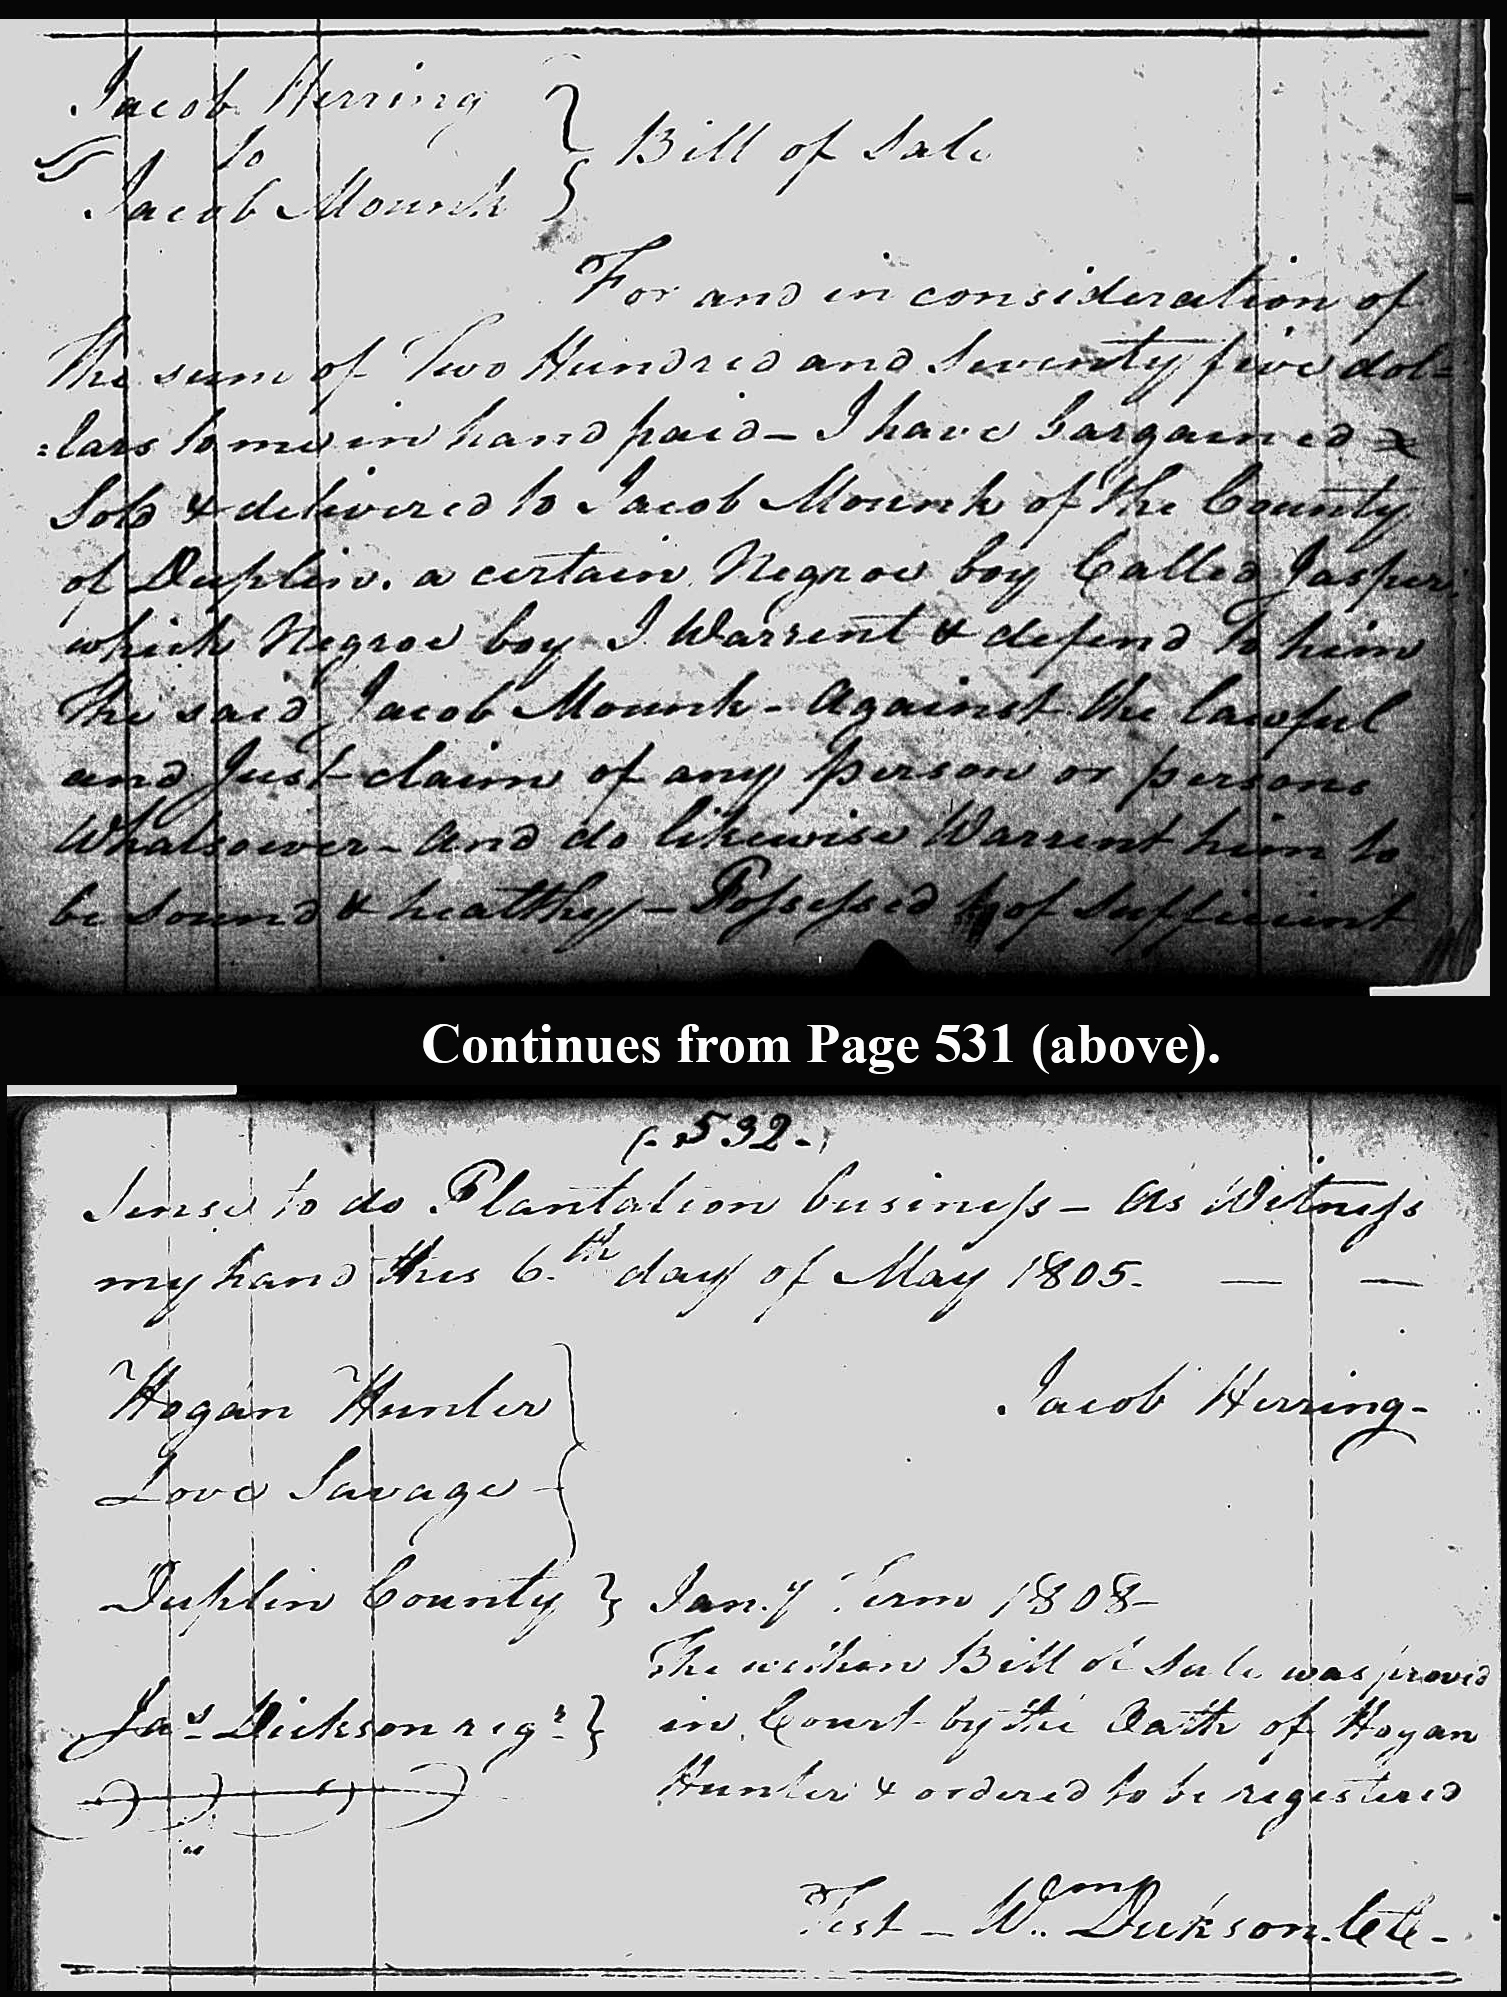 Jacob Herring
to
Jacob Mounk
Bill of Sale
For and in consideration of
the sum of Two Hundred and Seventy five dol=
=lars to me in hand paid – I have bargained &
Sold & delivered to Jacob Mounk of the County
of Duplin. a certain Negroe boy Called Jasper.
which Negroe boy I Warrent & defend to him
the said Jacob Mounk – against the lawful
and Just claim of any person or persons
Whatsoever – and do likewise Warrent him to
be Sound & healthy – Possessed of Sufficient
Continues from Page 531 (above).
(. 532 .)
Sense to do Plantation business – As Witness
my hand this 6.th day of May 1805. — —
Hogan Hunter
Jacob Herring –
Love Savage –
Duplin County } Jan.y Term 1808 –
The within Bill of Sale was proved
Jas Dickson regr } in Court by the Oath of Hogan
Hunter & ordered to be registered
Test – Wm Dickson. Clk –